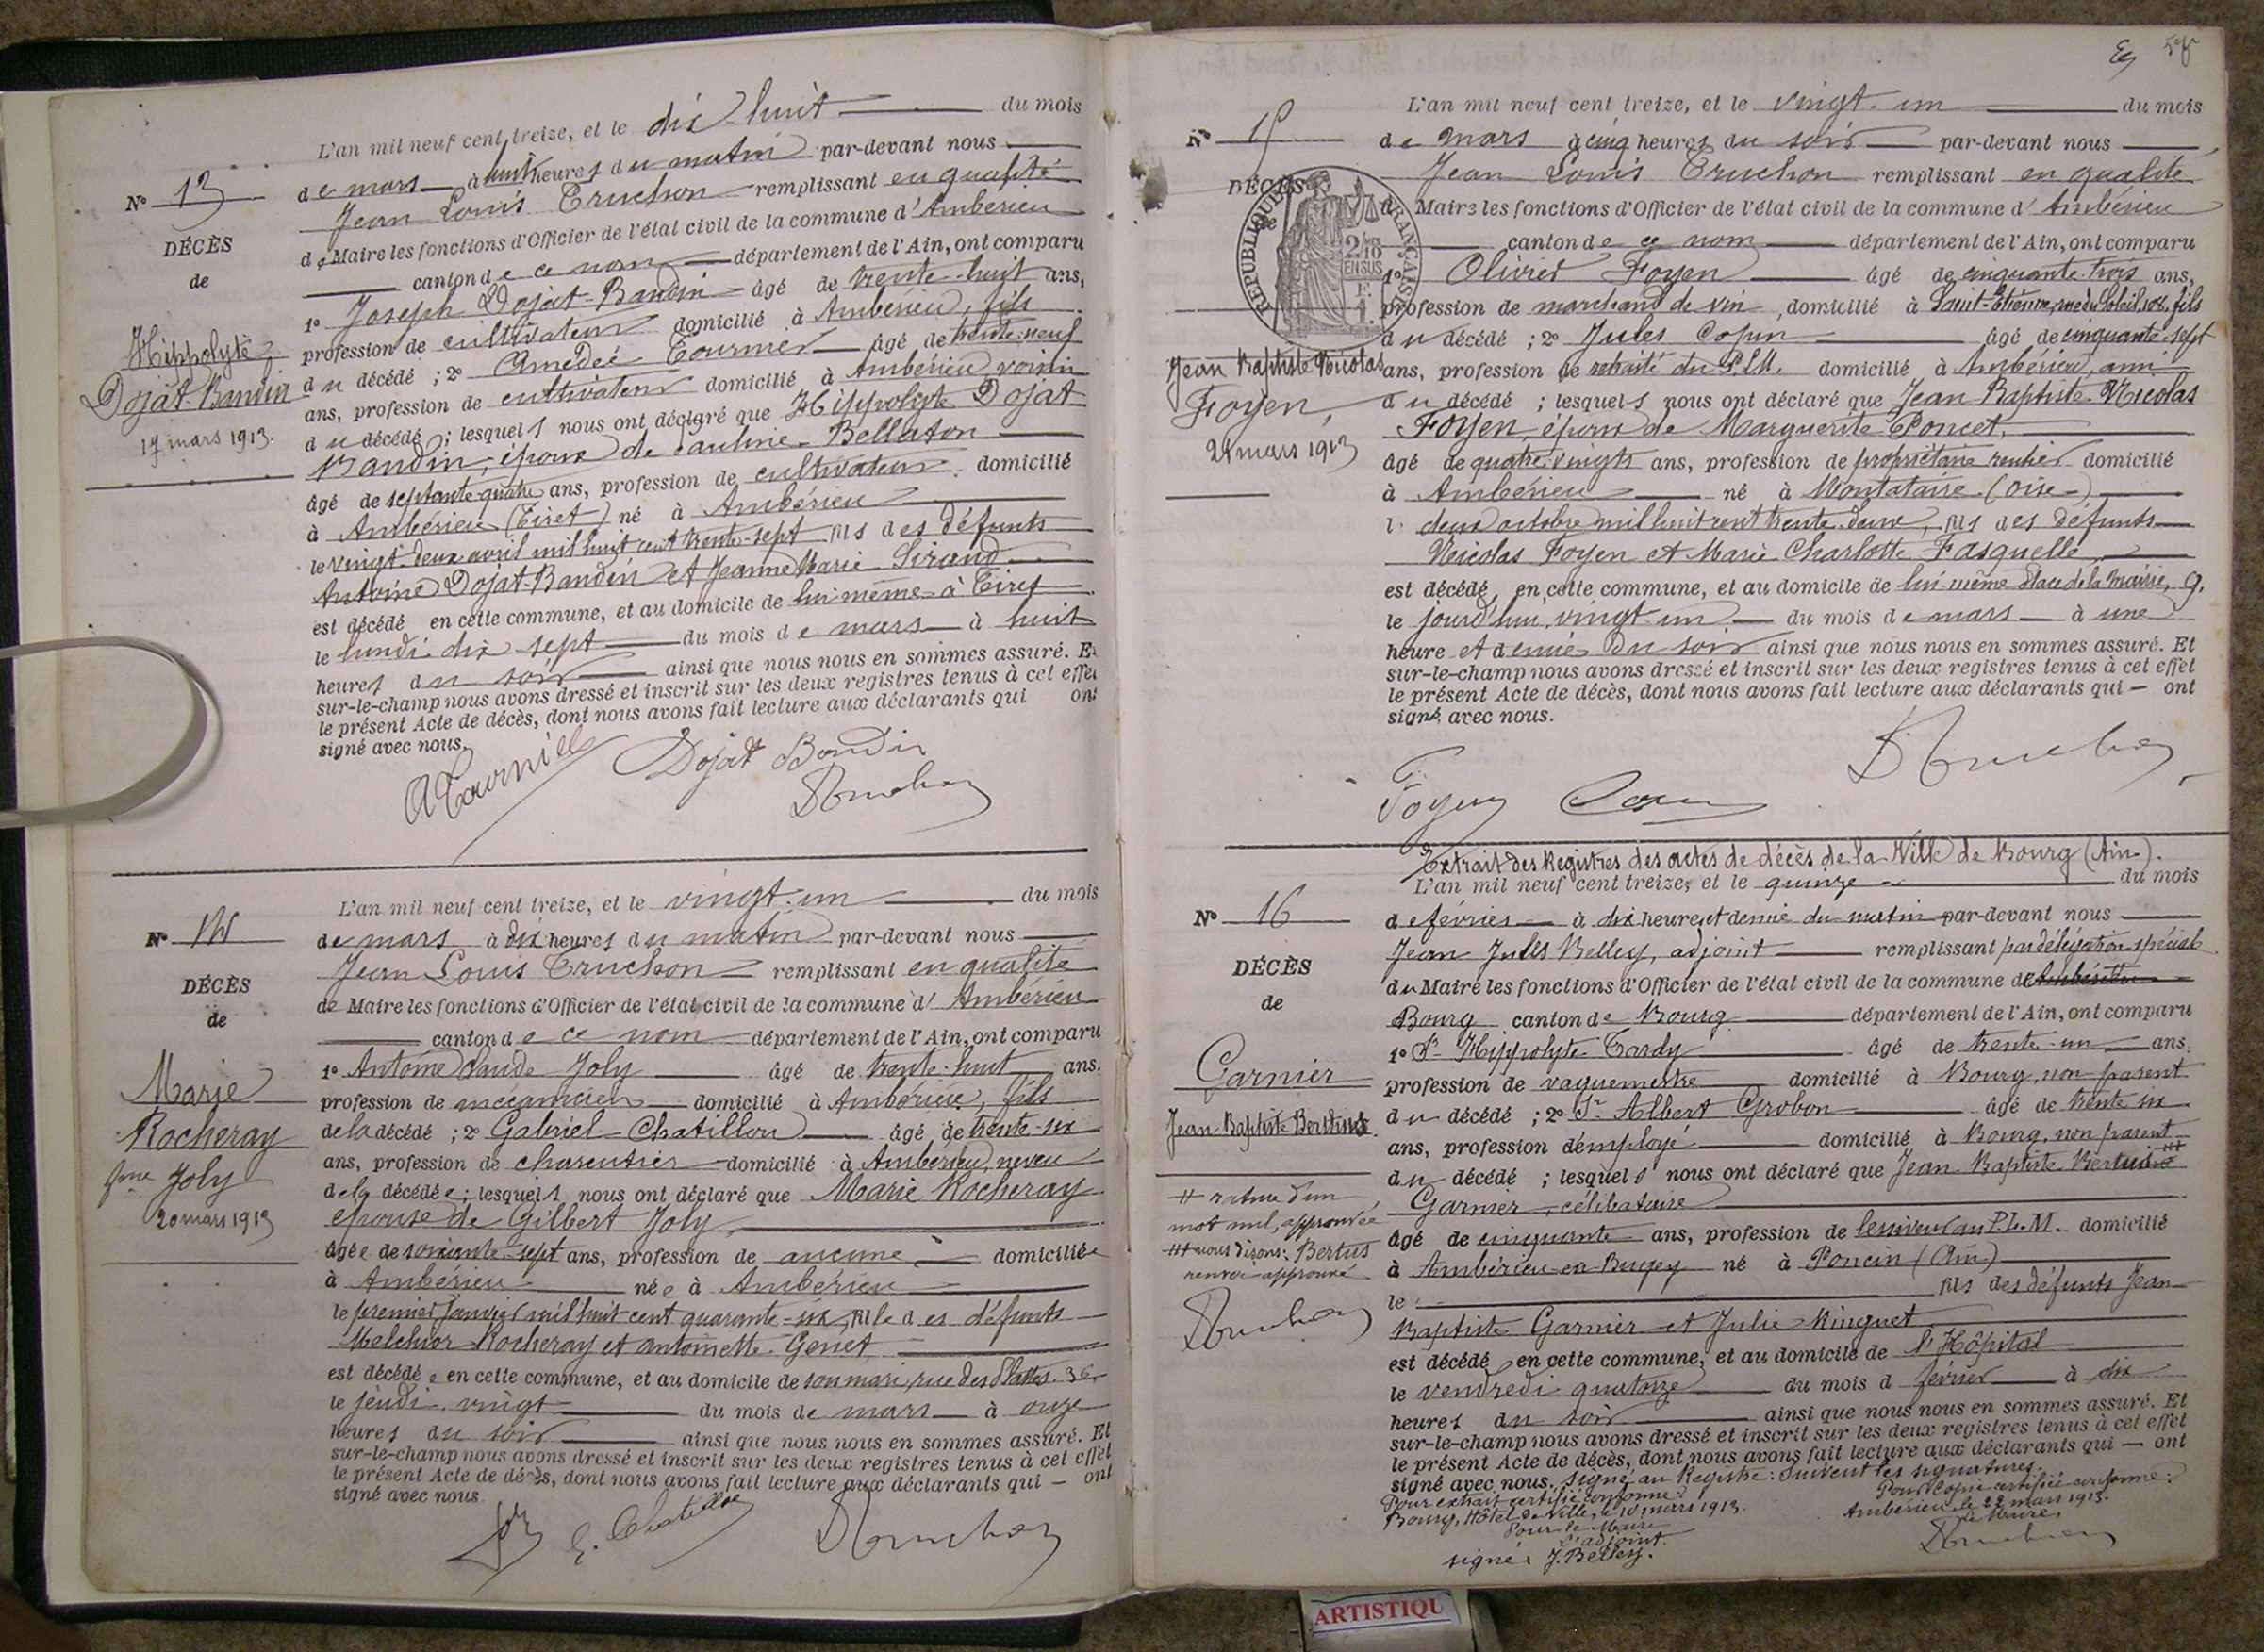 L'an mil neuf cent treize, et le dix-huit du mois
N° 13
de mars à huit heures du matin par-devant nous
Jean Louis Truchon remplissant en qualité
DÉCÈS
de Maire les fonctions d'Officier de l'état civil de la commune d'Ambérieu
de
canton de ce nom département de l'Ain, ont comparu
1° Joseph Dojat-Bandin âgé de trente-huit ans,
Hippolyte
profession de cultivateur domicilié à Ambérieu, fils
Dojat-Bandin
du décédé ; 2° Amedée Tournier âgé de trente-neuf
17 mars 1913.
ans, profession de cultivateur domicilié à Ambérieu, voisin
du décédé ; lesquels nous ont déclaré que Hippolyte Dojat
Bandin, époux de Pauline Bellaton
âgé de septante-quatre ans, profession de cultivateur domicilié
à Ambérieu (Tiret) né à Ambérieu
le vingt-deux avril mil huit cent trente-sept fils des défunts
Antoine Dojat-Bandin et Jeanne Marie Sirand
est décédé en cette commune, et au domicile de lui-même à Tiret
le lundi dix sept du mois de mars à huit
heures du soir ainsi que nous nous en sommes assuré. Et
sur-le-champ nous avons dressé et inscrit sur les deux registres tenus à cet effet
le présent Acte de décès, dont nous avons fait lecture aux déclarants qui ont
signé avec nous.
Dojat Bandin
L'an mil neuf cent treize, et le vingt-un du mois
N° 14
de mars à dix heures du matin par-devant nous
Jean Louis Truchon remplissant en qualité
DÉCÈS
de Maire les fonctions d'Officier de l'état civil de la commune d'Ambérieu
de
canton de ce nom département de l'Ain, ont comparu
1° Antoine Claude Joly âgé de trente-huit ans.
Marie
profession de mécanicien domicilié à Ambérieu, fils
Rocheray
de la décédé ; 2° Gabriel Chatillon âgé de trente-six
fme Joly
ans, profession de charcutier domicilié à Ambérieu, neveu
20 mars 1913
de la décédée ; lesquels nous ont déclaré que Marie Rocheray
épouse de Gilbert Joly,
âgée de soixante-sept ans, profession de aucune domiciliée
à Ambérieu née à Ambérieu
le premier janvier mil huit cent quarante-six, fille des défunts
Melchior Rocheray et antoinette Genet
est décédée en cette commune, et au domicile de son mari, rue des 36
le jeudi vingt du mois de mars à onze
heures du soir ainsi que nous nous en sommes assuré. Et
sur-le-champ nous avons dressé et inscrit sur les deux registres tenus à cet effet
le présent Acte de décès, dont nous avons fait lecture aux déclarants qui — ont
signé avec nous
L'an mil neuf cent treize, et le vingt-un du mois
N° 15
de mars à cinq heures du soir par-devant nous
Jean Louis Truchon remplissant en qualité
DÉCÈS
de Maire les fonctions d'Officier de l'état civil de la commune d'Ambérieu
de
RÉPUBLIQUE FRANÇAISE
2/10 EN SUS
canton de ce nom département de l'Ain, ont comparu
1° Olivier Foyen âgé de cinquante-trois ans,
profession de marchand de vin, domicilié à Saint-Etienne, rue du Soleil, fils
du décédé ; 2° Jules âgé de cinquante-sept
Jean Baptiste Nicolas
ans, profession de retraité du P.L.M. domicilié à Ambérieu, ami
Foyen,
du décédé ; lesquels nous ont déclaré que Jean Baptiste Nicolas
21 mars 1913
Foyen, époux de Marguerite Poncet,
âgé de quatre-vingts ans, profession de propriétaire rentier domicilié
à Ambérieu né à Montataire (Oise)
l. deux octobre mil huit cent trente-deux, fils des défunts
Nicolas Foyen et Marie Charlotte Fasquelle
est décédé, en cette commune, et au domicile de lui-même Place de la Mairie, 9.
le jourd'hui, vingt-un du mois de mars à une
heure et demie du soir ainsi que nous nous en sommes assuré. Et
sur-le-champ nous avons dressé et inscrit sur les deux registres tenus à cet effet
le présent Acte de décès, dont nous avons fait lecture aux déclarants qui — ont
signé avec nous.
Foyen
Extrait des Registres des actes de décès de la Ville de Bourg (Ain).
L'an mil neuf cent treize, et le quinze du mois
N° 16
de février à dix heures et demie du matin par-devant nous
Jean Jules Belley, adjoint remplissant par délégation spéciale
DÉCÈS
du Maire les fonctions d'Officier de l'état civil de la commune de Ambérieu
de
Bourg canton de Bourg département de l'Ain, ont comparu
1° Sr Hippolyte Tardy âgé de trente-un ans.
Garnier
profession de vaguemestre domicilié à Bourg, non parent
Jean Baptiste Bertus
du décédé ; 2° Sr Albert Grobon âgé de trente six
ans, profession d'employé domicilié à Bourg, non parent
du décédé ; lesquels nous ont déclaré que Jean Baptiste
Garnier, célibataire
# rature d'un
mot nul, approuvée
## nous disons: Bertus
renvoi approuvé
âgé de cinquante ans, profession de lessiveur au P.L.M. domicilié
à Ambérieu-en-Bugey né à Poncin (Ain)
le fils des défunts Jean
Baptiste Garnier et Julie Ringuet
est décédé en cette commune, et au domicile de l'Hôpital
le vendredi quatorze du mois d février à dix
heures du soir ainsi que nous nous en sommes assuré. Et
sur-le-champ nous avons dressé et inscrit sur les deux registres tenus à cet effet
le présent Acte de décès, dont nous avons fait lecture aux déclarants qui — ont
signé avec nous. signé au Registre: Suivent les signatures.
Pour extrait certifié conforme:
Bourg, Hôtel de Ville, le 10 mars 1913.
Pour le Maire
L'adjoint.
signé: J. Belley.
Pour Copie certifiée conforme:
Ambérieu le 22 mars 1913.
Le Maire,
ARTISTIQU